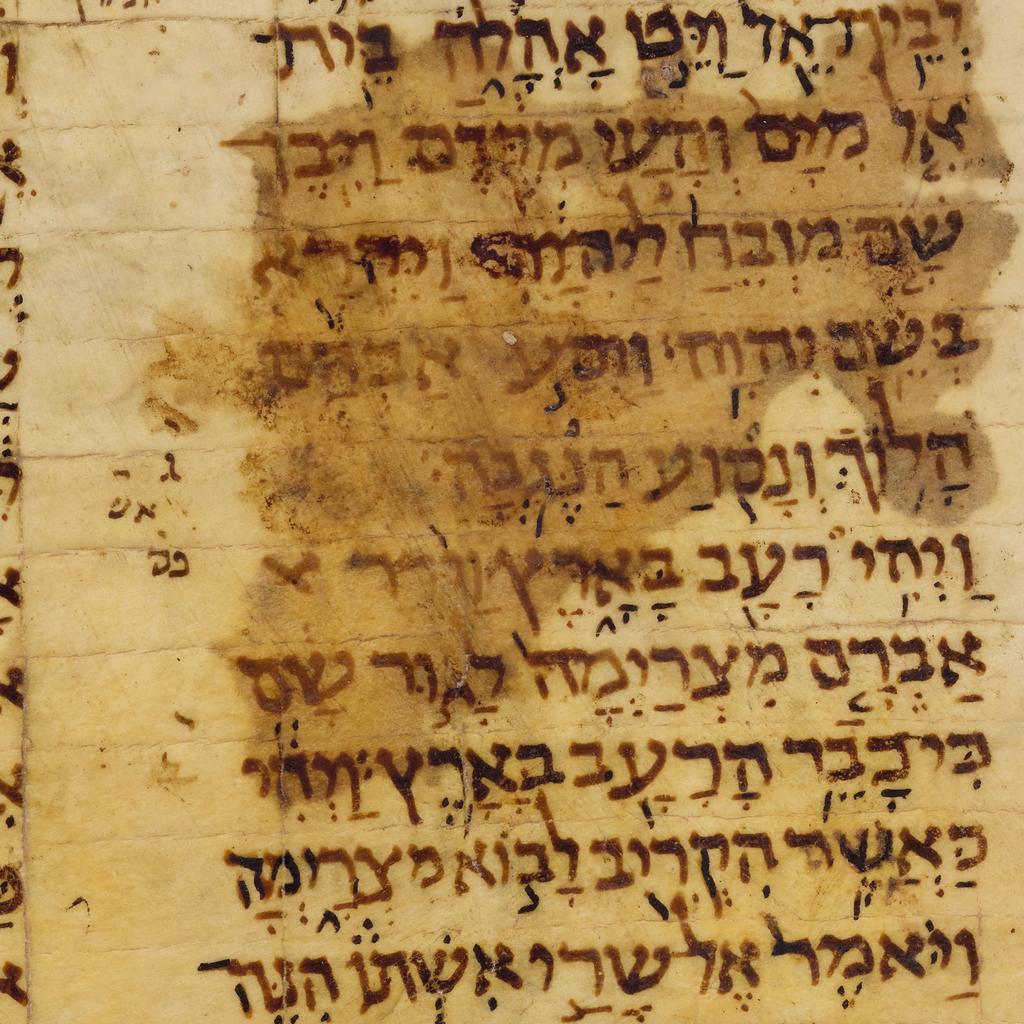 לְבֵית אֵל וַיֵּט אָהֳלֹה בֵּית
אֵל מִיָּם וְהָעַי מִקֶּדֶם וַיִּבֶן
שָׁם מִזְבֵּחַ לַיהוָה וַיִּקְרָא
בְּשֵׁם יְהוָה וַיִּסַּע אַבְרָם
הָלוֹךְ וְנָסוֹעַ הַנֶּגְבָּה
וַיְהִי רָעָב בָּאָרֶץ וַיֵּרֶד א
אַבְרָם מִצְרַיְמָה לָגוּר שָׁם
כִּי כָבֵד הָרָעָב בָּאָרֶץ וַיְהִי
כַּאֲשֶׁר הִקְרִיב לָבוֹא מִצְרָיְמָה
וַיֹּאמֶר אֶל שָׂרַי אִשְׁתּוֹ הִנֵּה